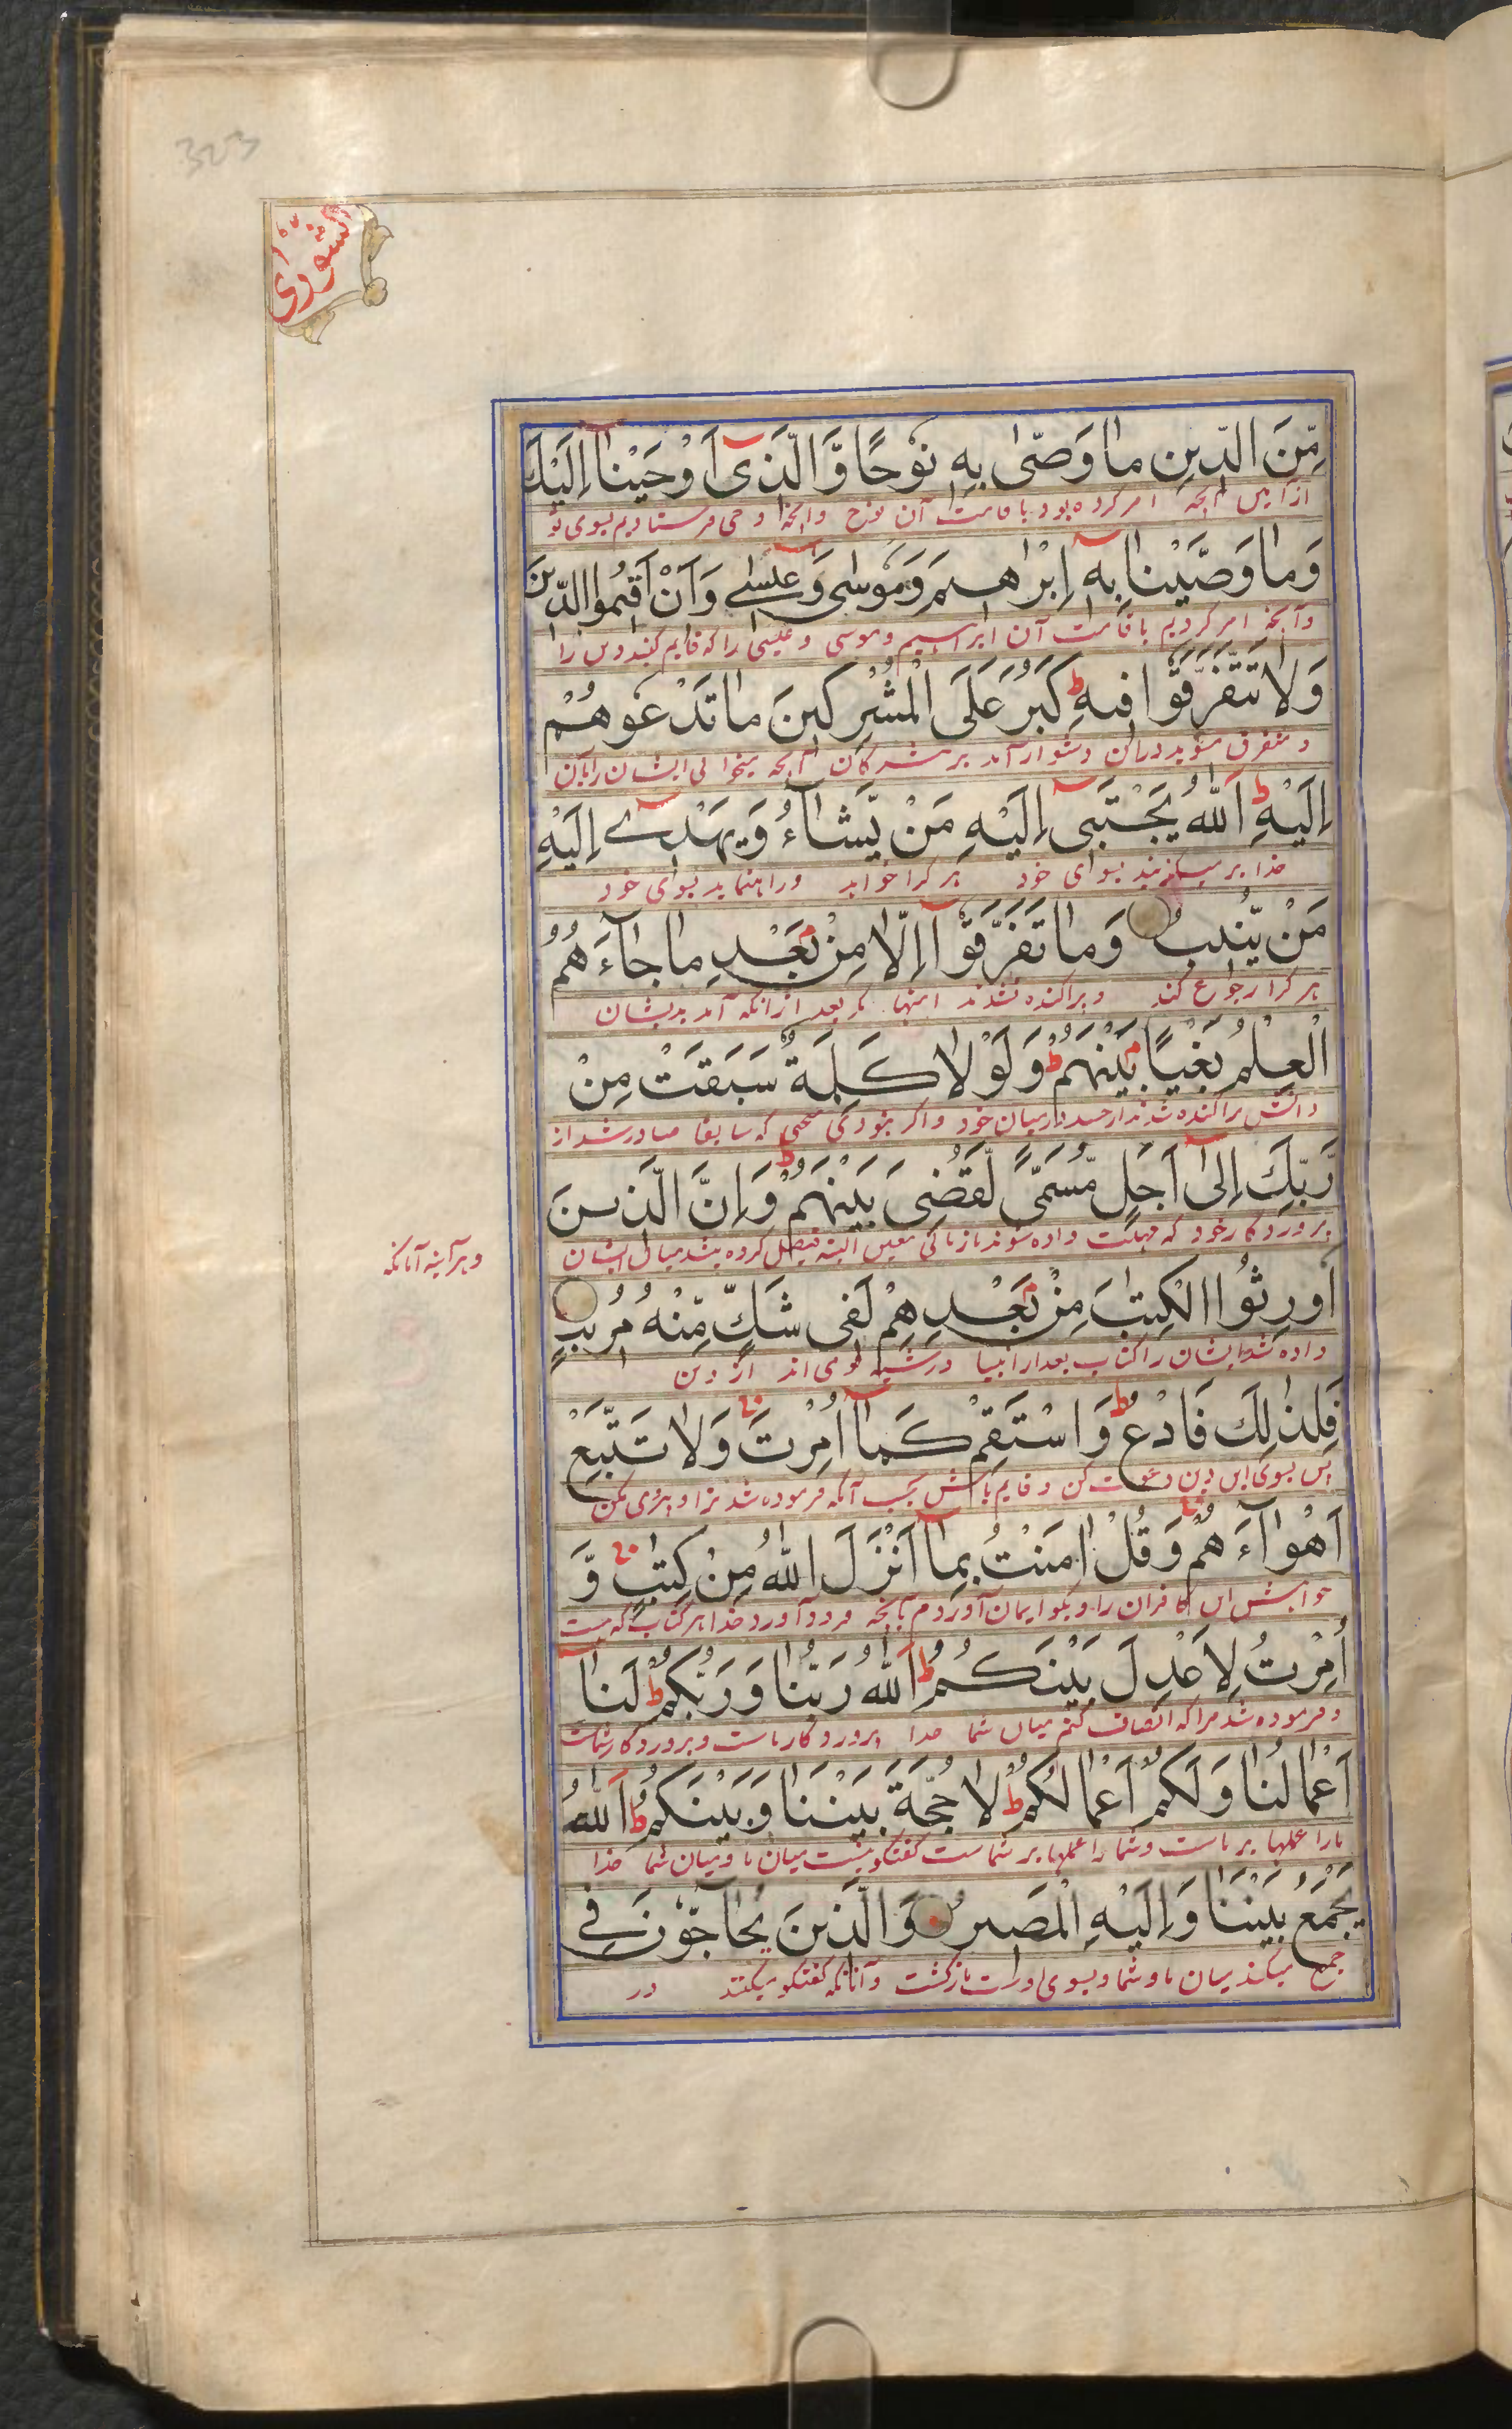 323
الشوری
مِّنَ الدِّينِ مَا وَصّٰى بِهٖ نُوحًا وَّالَّذِىٓ اَوْحَيْنَآ اِلَيْكَ
از آیین آنچه امر کرده بود باقامت آن نوح وآنچه وحی فرستادیم بسوی تو
وَمَا وَصَّيْنَا بِهٖٓ اِبْرٰهِيمَ وَمُوسٰى وَعِيسٰٓى اَنْ اَقِيمُوا الدِّينَ
وآنچه امر کردیم باقامت آن ابراهیم وموسی وعیسی را که قایم کنید دین را
وَلَا تَتَفَرَّقُوا فِيهِ ط كَبُرَ عَلَى الْمُشْرِكِينَ مَا تَدْعُوهُمْ
ومتفرق مشوید دران دشوار آمد بر مشرکان آنچه میخوانی ایشان را بآن
اِلَيْهِ ط اَللّٰهُ يَجْتَبِىٓ اِلَيْهِ مَنْ يَّشَآءُ وَيَهْدِىٓ اِلَيْهِ
خدا بر میگزیند بسوای خود هر کرا خواهد وراه نماید بسوای خود
مَنْ يُّنِيبُ وَمَا تَفَرَّقُوٓا اِلَّا مِنْ بَعْدِ مَا جَآءَهُمُ
هر کرا رجوع کند وپراکنده نشدند اینها مگر بعد ازانکه آمد بدیشان
الْعِلْمُ بَغْيًا بَيْنَهُمْ ط وَلَوْلَا كَلِمَةٌ سَبَقَتْ مِنْ
دانش پراکنده شدند از حسد درمیان خود واگر نبودی سخنی که سابقا صادر شد از
رَّبِّكَ اِلٰٓى اَجَلٍ مُّسَمًّى لَّقُضِىَ بَيْنَهُمْ ط وَاِنَّ الَّذِينَ
پروردگار خود که مهلت داده شوند تا زمانی معین البته فیصل کرده میشد میان ایشان
وهر آینه آنانکه
اُورِثُوا الْكِتٰبَ مِنْ بَعْدِهِمْ لَفِى شَكٍّ مِّنْهُ مُرِيبٍ
داده شد ایشان را کتاب بعد از انبیا در شبهه قوی اند از دین
فَلِذٰلِكَ فَادْعُ ط وَاسْتَقِمْ كَمَآ اُمِرْتَ وَلَا تَتَّبِعْ
پس بسوی این دین دعوت کن وقایم باش بحسب آنکه فرموده شد ترا وپیروی مکن
اَهْوَآءَهُمْ وَقُلْ اٰمَنْتُ بِمَآ اَنْزَلَ اللّٰهُ مِنْ كِتٰبٍ وَّ
خواهش این کافران را وبگو ایمان آوردم بآنچه فرود آورد خدا هر کتاب که هست
اُمِرْتُ لِاَعْدِلَ بَيْنَكُمْ ط اَللّٰهُ رَبُّنَا وَرَبُّكُمْ ط لَنَآ
وفرموده شد مرا که انصاف کنم میان شما خدا پروردگار ماست وپروردگار شماست
اَعْمَالُنَا وَلَكُمْ اَعْمَالُكُمْ ط لَا حُجَّةَ بَيْنَنَا وَبَيْنَكُمْ ط اَللّٰهُ
مارا عملها بر ماست وشما را عملها بر شماست گفتگو نیست میان ما ومیان شما خدا
يَجْمَعُ بَيْنَنَا وَاِلَيْهِ الْمَصِيرُ وَالَّذِينَ يُحَآجُّونَ فِى
جمع میکند میان ما وشما وبسوی اوست بازگشت وآنانکه گفتگو میکنند در